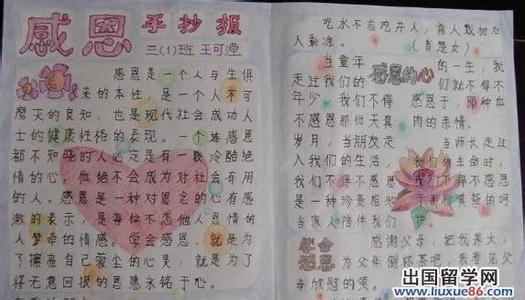 感恩 手抄报
三(1)班 王可滢
感恩是一个人与生俱
来的本性,是一个人不可
磨灭的良知,也是现代社会成功人
士的健康性格的表现。一个连感恩
都不知晓的人必定是有一颗冷酷绝
情的心。他绝不会成为对社会有用
的人。感恩是一种对恩惠的心有感
激的表示,是每位不忘他人恩情的
人萦绕的情感。学会感恩,就是为
了擦亮自己蒙尘的心灵,就是为了
将无意回报的恩惠永铭于心。
吃水不忘吃井人,前人栽树后
人乘凉。
当童年 的一生,我
走过我们的 感恩的心 们就不得不
年少 我们不得 感恩于,那种血
不感恩那份天真 肉的亲情。
岁月,当朋友走 当师长走过
入我们的生活, 我们的生命时,
我们不得不感恩 我们不得不感恩
是一种珍贵相
当家人陪伴我们
学会
感恩
感谢父母,把我养大,
为父母倒杯茶吧,我看见
父母欣慰的笑。
出国留学网
www.liuxue86.com